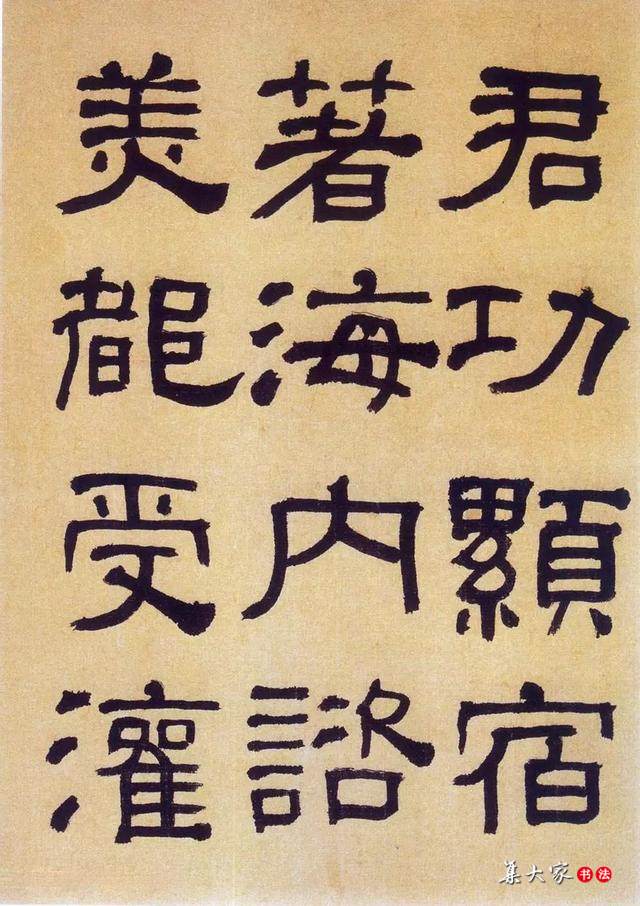 君功顯宿
著海内諮
美都受灌
集大家书法